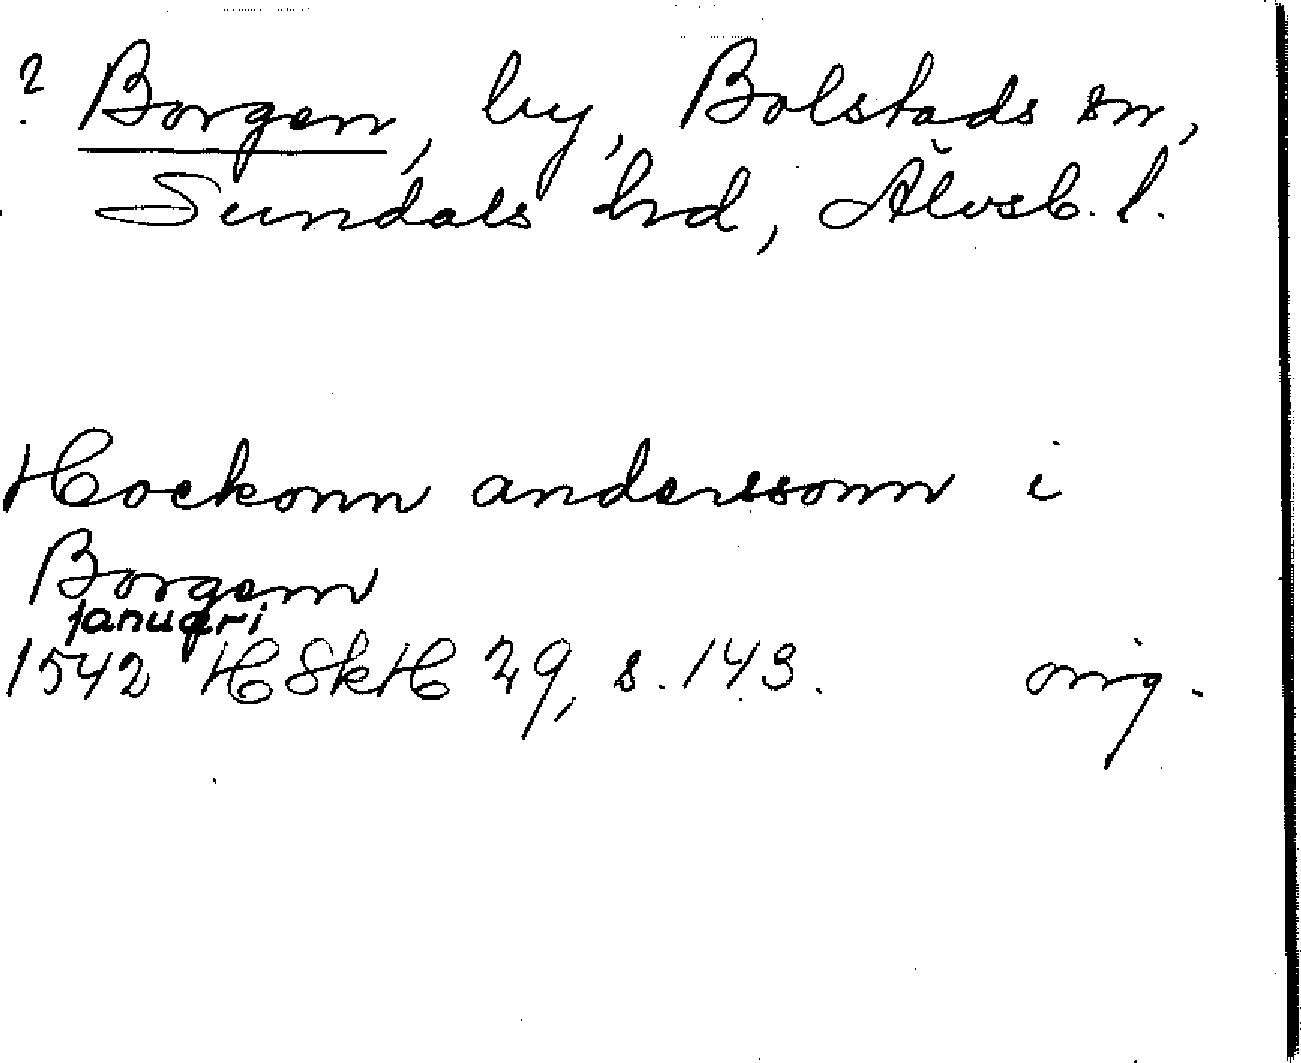 ? Borgen, by, Bolstads sn,
Sundals hrd, Älvsb. l.
Hockonn anderssonn i
Borgenn
januari
1542 HSkH 29, s. 143. orig.